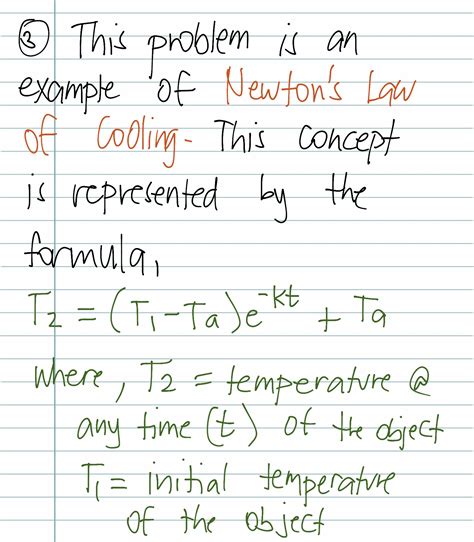 ③ This problem is an
example of Newton's Law
of Cooling - This concept
is represented by the
formula,
T₂ = (T₁-Ta)e^-kt + Ta
where, T₂ = temperature @
any time (t) of the object
T₁ = initial temperature
of the object